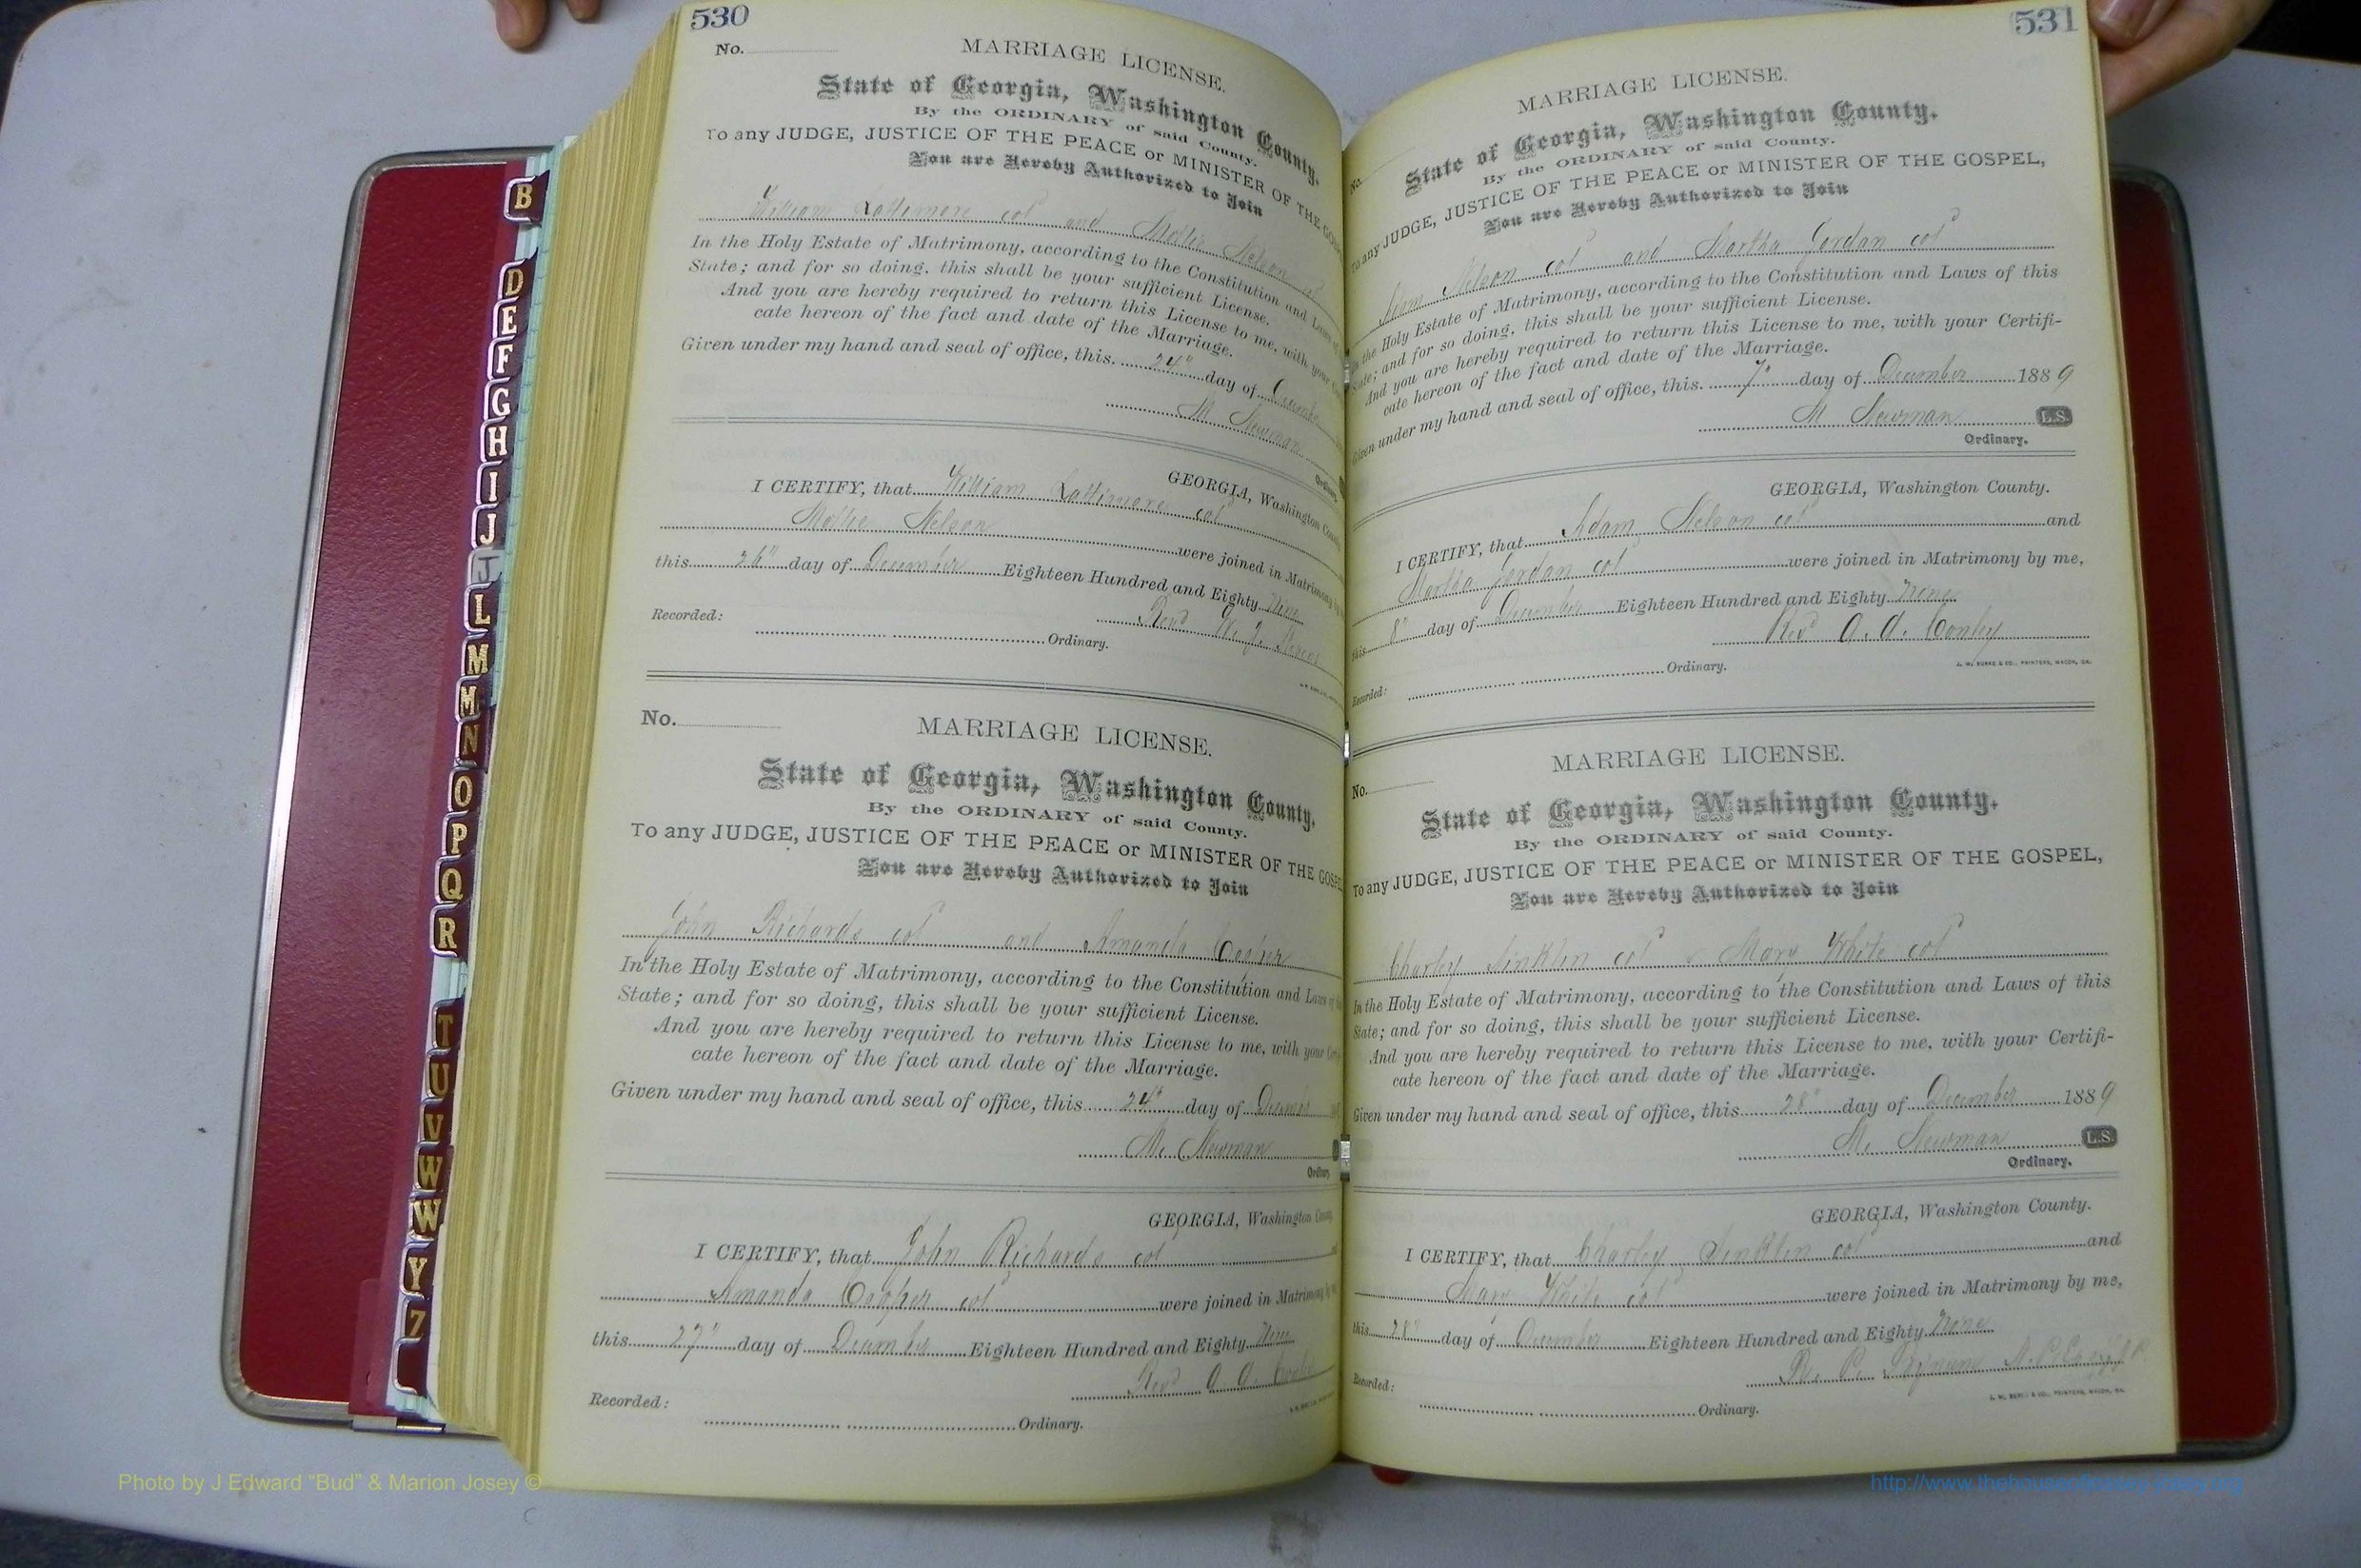 530
No.
MARRIAGE LICENSE.
State of Georgia, Washington County.
By the ORDINARY of said County.
To any JUDGE, JUSTICE OF THE PEACE or MINISTER OF THE GOS
You are Hereby Authorized to Join
William Lattimore col and Mollie Nelson
In the Holy Estate of Matrimony, according to the Constitution and Laws of
State; and for so doing, this shall be your sufficient License.
And you are hereby required to return this License to me, with your
cate hereon of the fact and date of the Marriage.
Given under my hand and seal of office, this 24" day of December
M Newman
Ordinary.
GEORGIA, Washington County
I CERTIFY, that William Lattimore col
Mollie Nelson were joined in Matrimony
this 26" day of December Eighteen Hundred and Eighty Nine
Rev'd W. J.
Recorded: Ordinary.
No.
MARRIAGE LICENSE.
State of Georgia, Washington County.
By the ORDINARY of said County.
To any JUDGE, JUSTICE OF THE PEACE or MINISTER OF THE GOSPEL
You are Hereby Authorized to Join
John Richards col and Amanda Cooper
In the Holy Estate of Matrimony, according to the Constitution and Laws of
State; and for so doing, this shall be your sufficient License.
And you are hereby required to return this License to me, with your
cate hereon of the fact and date of the Marriage.
Given under my hand and seal of office, this 24" day of
M. Newman
Ordinary
GEORGIA, Washington
I CERTIFY, that John Richards col
Amanda Cooper col were joined in Matrimony
this 27" day of December Eighteen Hundred and Eighty Nine
Rev'd A. A.
Recorded: Ordinary.
531
MARRIAGE LICENSE.
No.
State of Georgia, Washington County.
By the ORDINARY of said County.
To any JUDGE, JUSTICE OF THE PEACE or MINISTER OF THE GOSPEL,
You are Hereby Authorized to Join
Adam Nelson col and Martha Jordan col
the Holy Estate of Matrimony, according to the Constitution and Laws of this
State; and for so doing, this shall be your sufficient License.
And you are hereby required to return this License to me, with your Certifi-
cate hereon of the fact and date of the Marriage.
Given under my hand and seal of office, this 7" day of December 1889
M Newman L.S.
Ordinary.
GEORGIA, Washington County.
I CERTIFY, that Adam Nelson col and
Martha Jordan col were joined in Matrimony by me,
this 8" day of December Eighteen Hundred and Eighty Nine
Rev'd A. A. Conley
J. W. BURKE & CO., PRINTERS, MACON, GA.
Recorded: Ordinary.
MARRIAGE LICENSE.
No.
State of Georgia, Washington County.
By the ORDINARY of said County.
To any JUDGE, JUSTICE OF THE PEACE or MINISTER OF THE GOSPEL,
You are Hereby Authorized to Join
Charley Sinklin col & Mary White col
In the Holy Estate of Matrimony, according to the Constitution and Laws of this
State; and for so doing, this shall be your sufficient License.
And you are hereby required to return this License to me, with your Certifi-
cate hereon of the fact and date of the Marriage.
Given under my hand and seal of office, this 28" day of December 1889
M. Newman L.S.
Ordinary.
GEORGIA, Washington County.
I CERTIFY, that Charley Sinklin col and
Mary White col were joined in Matrimony by me,
this 28" day of December Eighteen Hundred and Eighty Nine
J. W. BURKE & CO., PRINTERS, MACON, GA.
Recorded: Ordinary.
B
D
E
F
G
H
I
J
J
L
M
M
N
O
P
Q
R
T
U
V
W
W
Y
Z
Photo by J Edward "Bud" & Marion Josey ©